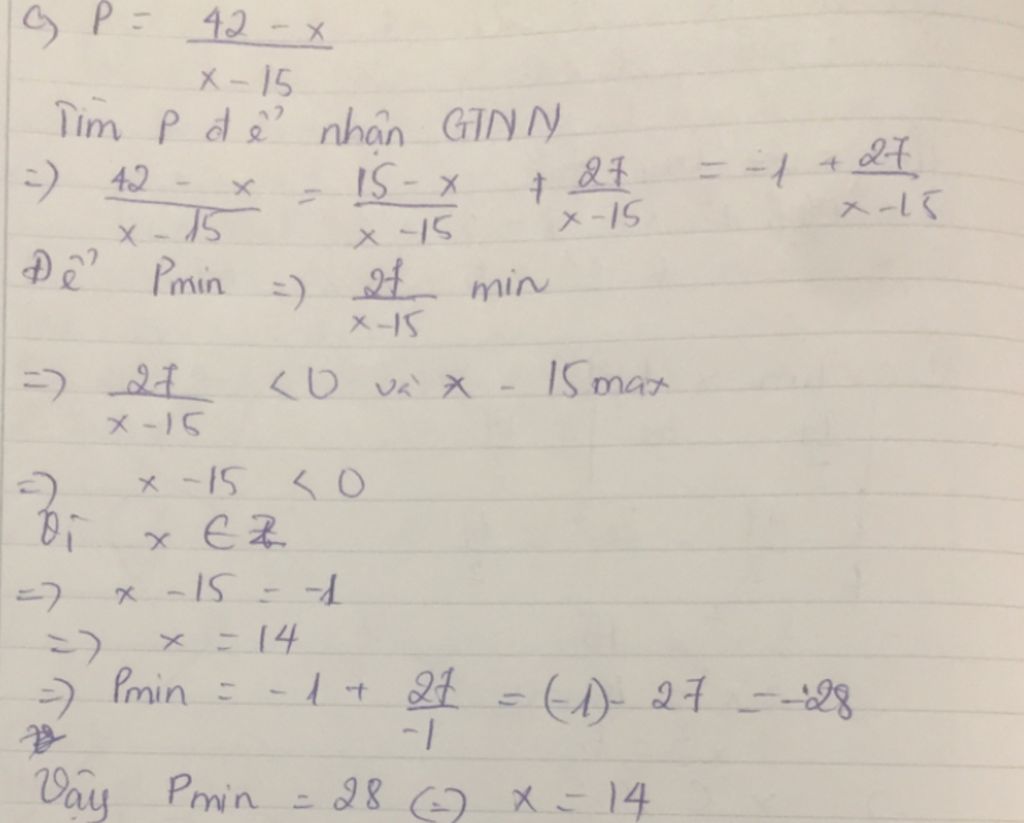 c, P = 42 - x / x - 15
Tìm P để nhận GTNN
=) 42 - x / x - 15 = 15 - x / x - 15 + 27 / x - 15 = -1 + 27 / x - 15
Để Pmin =) 27 / x - 15 min
=) 27 / x - 15 < 0 và x - 15 max
=) x - 15 < 0
Vì x ∈ Z
=) x - 15 = -1
=) x = 14
=) Pmin = - 1 + 27 / -1 = (-1) - 27 = -28
Vậy Pmin = 28 (=) x = 14